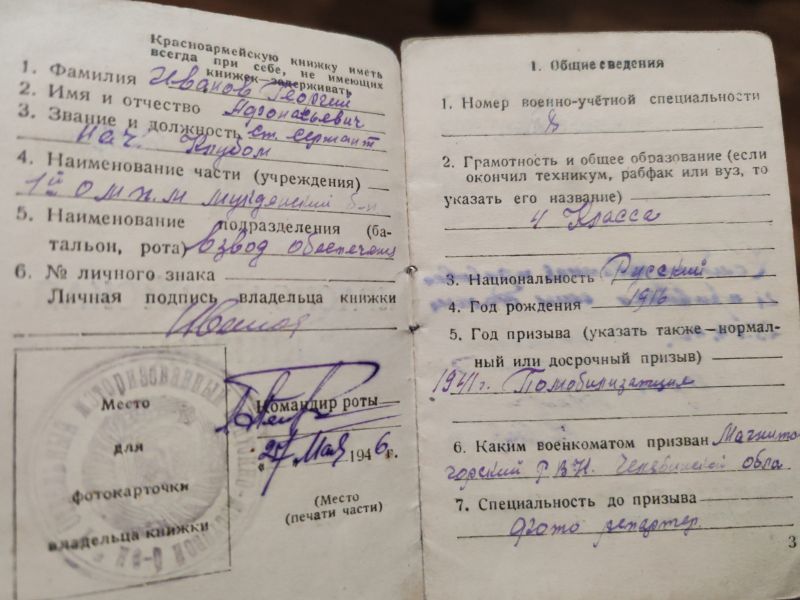 Красноармейскую книжку иметь
всегда при себе, не имеющих
книжек—задерживать
1. Фамилия Иванов Георгий
2. Имя и отчество Афонасьевич
3. Звание и должность ст. сержант
нач. Клубом
4. Наименование части (учреждения)
1й о м.п.м мукденский б-н
5. Наименование подразделения (ба-
тальон, рота) взвод обеспечен
6. № личного знака
Личная подпись владельца книжки
Иванов
Место
для
фотокарточки
владельца книжки
Командир роты
„27 Мая 1946 г.
(Место
печати части)
1. Общие сведения
1. Номер военно-учётной специальности
2. Грамотность и общее образование (если
окончил техникум, рабфак или вуз, то
указать его название)
4 Класса
3. Национальность Русский
4. Год рождения 1916
5. Год призыва (указать также—нормал-
ный или досрочный призыв)
1941 г. Помобилизатция
6. Каким военкоматом призван Магнито
горский Р.В.К. Челябинской обла
7. Специальность до призыва
фото репартер
3